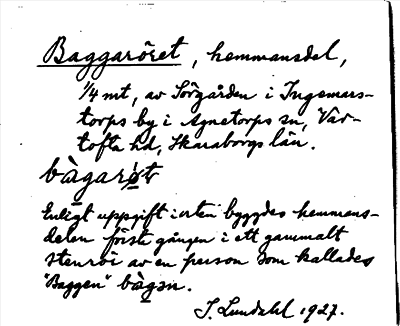 Baggaröret, hemmansdel,
1/4 mt, av Sörgården i Ingemars-
torps by i Agnetorps sn, Var-
tofta hd, Skaraborgs län.
bàgarøt
Enligt uppgift i orten byggdes hemmans-
delen först gången i ett gammalt
stenrör av en person som kallades
"Baggen" bàgən.
J. Lundahl 1927.